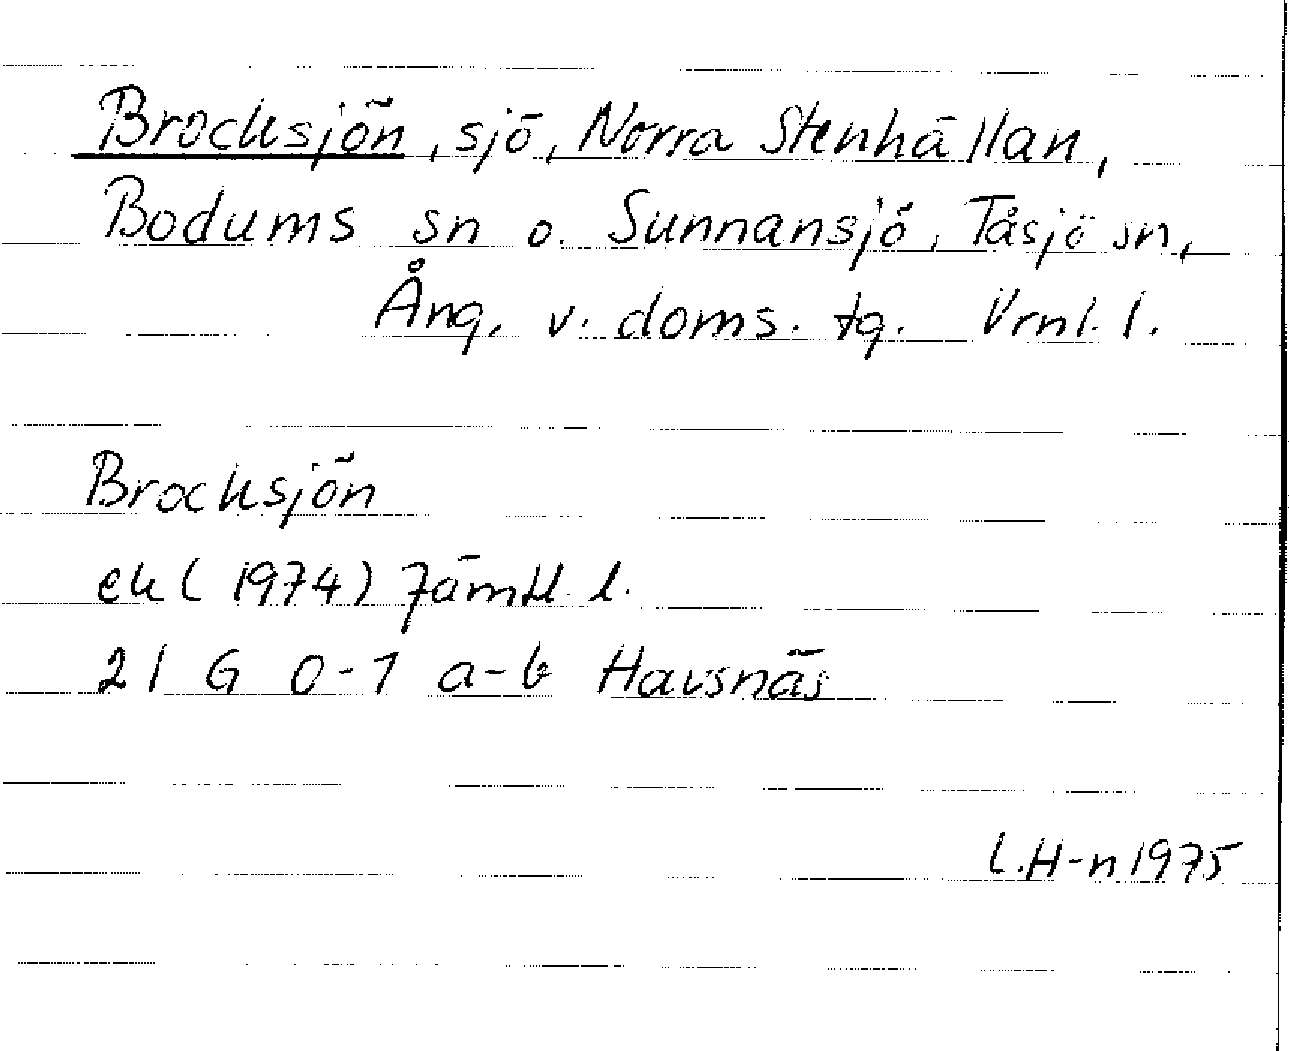 Brocksjön, sjö, Norra Stenhällan,
Bodums sn o. Sunnansjö, Tåsjö sn,
Ång. v. doms. tg. Vrnl. l.
Brocksjön
ek (1974) Jämtl. l.
21 G 0-1 a-b Havsnäs
L.H-n 1975